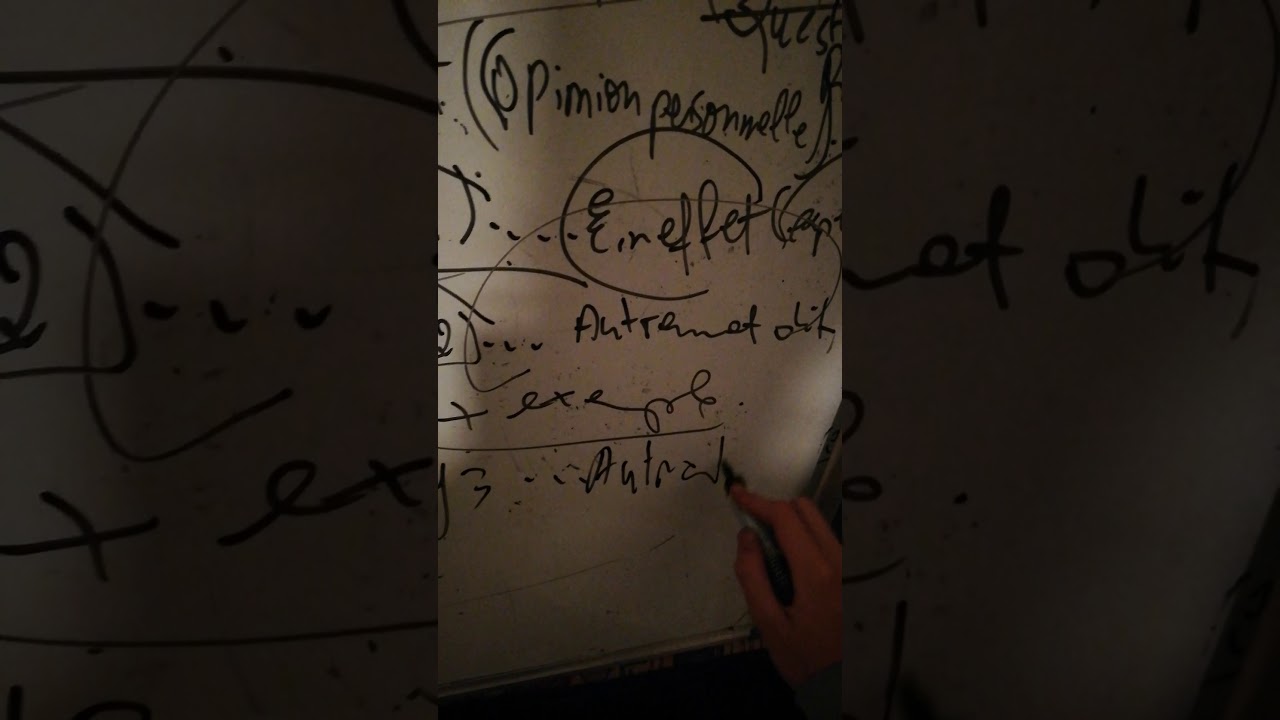 Quest
(Opinion personnelle).
)..... En effet (exp
2)... Autremet dit,
+ exemple.
3 ... Autred